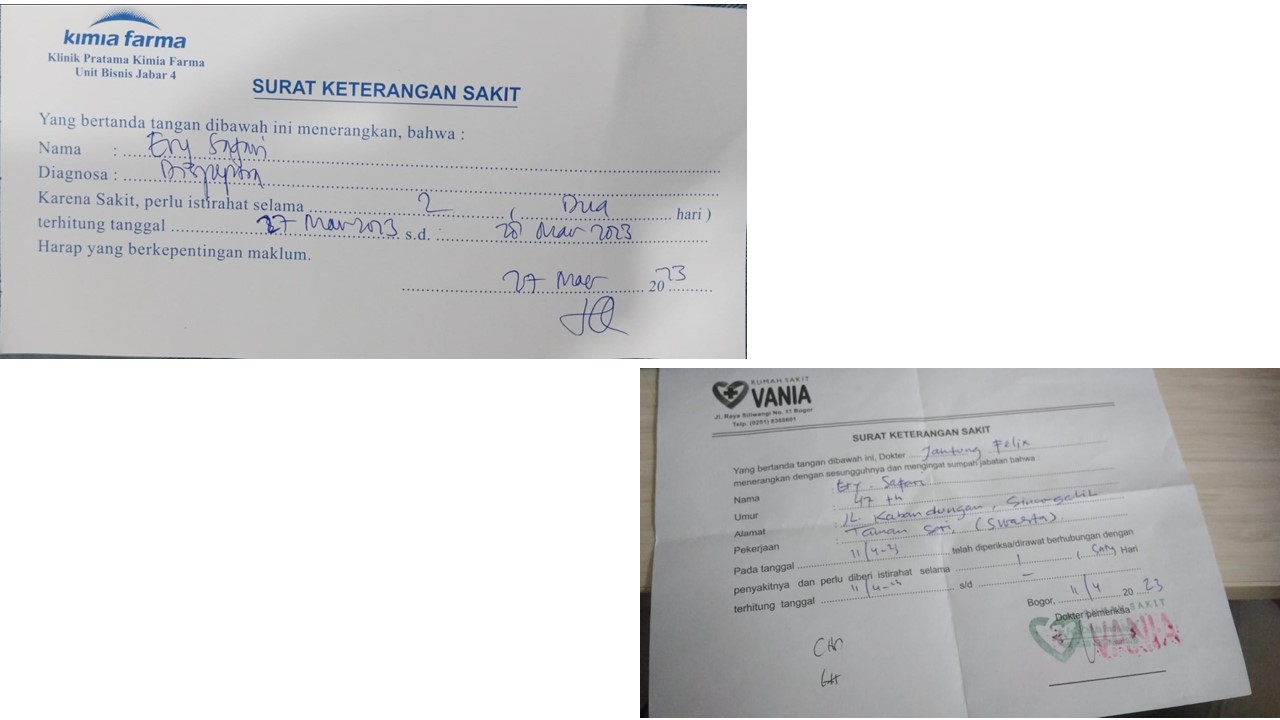 kimia farma
Klinik Pratama Kimia Farma
Unit Bisnis Jabar 4
SURAT KETERANGAN SAKIT
Yang bertanda tangan dibawah ini menerangkan, bahwa :
Nama : Ery Safari
Diagnosa :
Karena Sakit, perlu istirahat selama 2 ( Dua hari )
terhitung tanggal 27 Mar 2023 s.d. 28 Mar 2023
Harap yang berkepentingan maklum.
27 Maer 2023
RUMAH SAKIT
VANIA
Jl. Raya Siliwangi No. 11 Bogor
Telp. (0251)
SURAT KETERANGAN SAKIT
Yang bertanda tangan dibawah ini, Dokter Jantung Felix
menerangkan dengan sesungguhnya dan mengingat sumpah jabatan bahwa :
Nama : Ery. Safari
Umur : 47 th
Alamat : JL Kabandungan, Sirnagalih
Taman Sari, (Swasta)
Pekerjaan :
Pada tanggal 11/4-23 telah diperiksa/dirawat berhubungan dengan
penyakitnya dan perlu diberi istirahat selama 1 ( Satu Hari
terhitung tanggal 11/4-23 s/d –
Bogor, 11/4 2023
Dokter pemeriksa
RUMAH SAKIT
VANIA